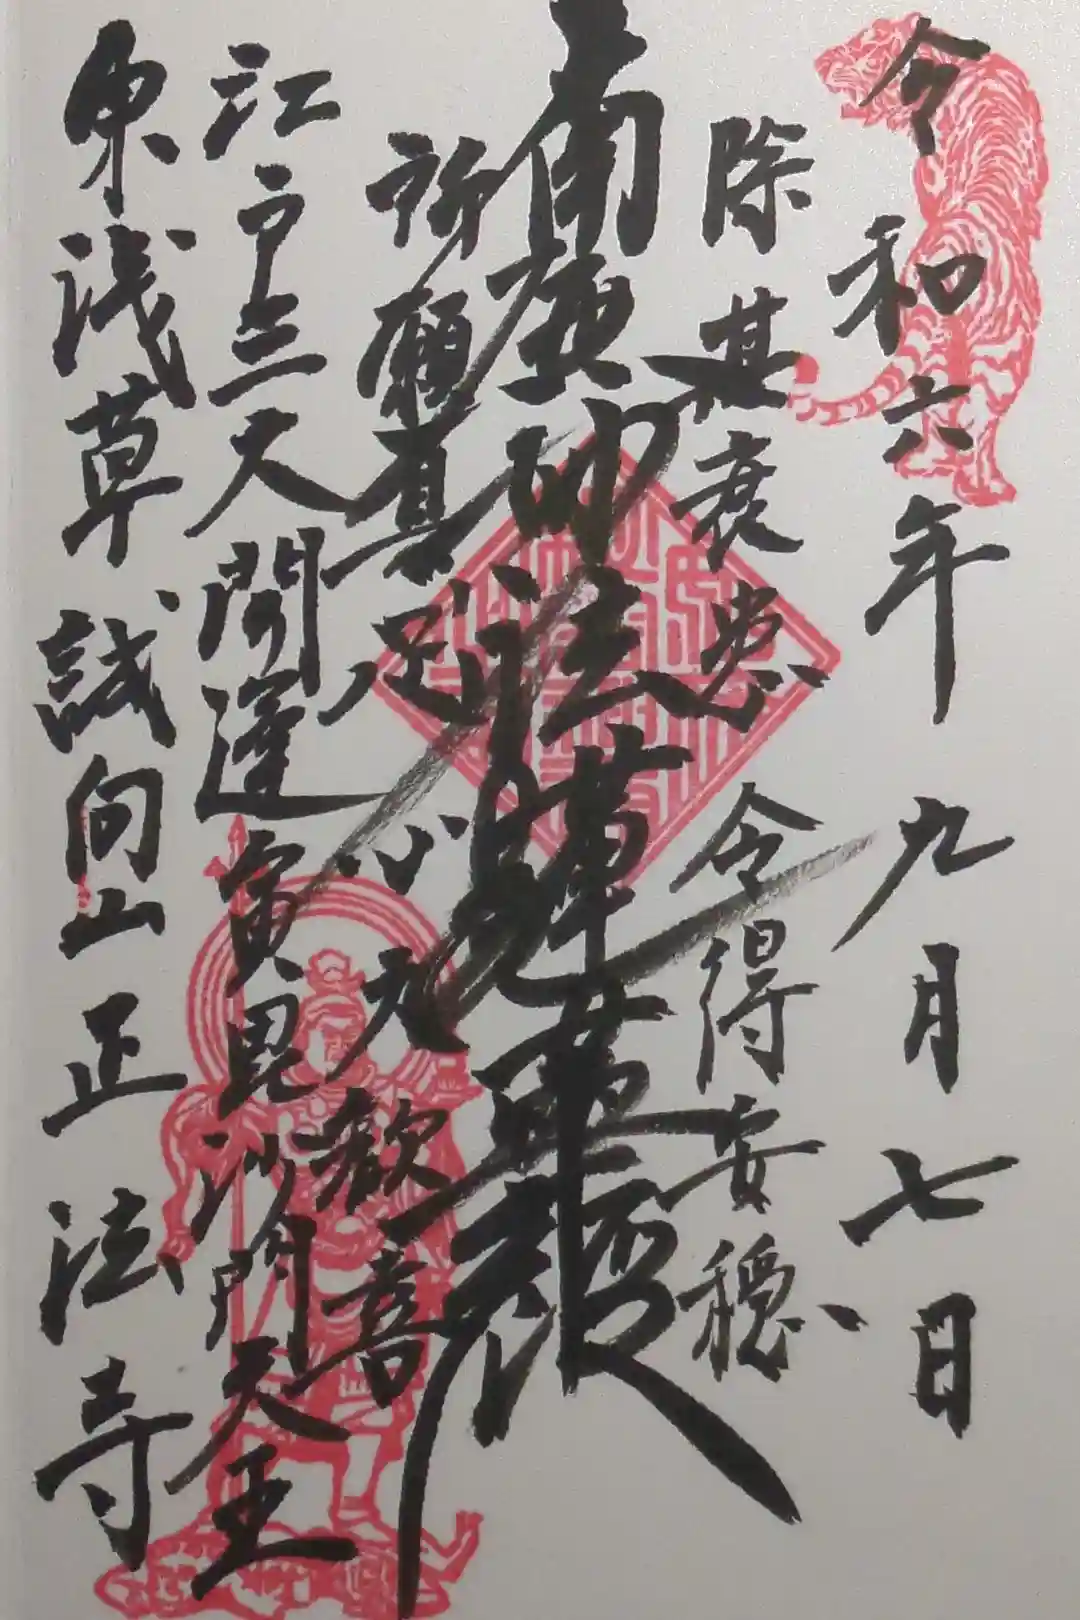 令和六年九月七日
除其衰患 令得安穏
南無妙法蓮華經
所願具足 心大歓喜
江戸三大開運寅毘沙門天王
東浅草 誠向山 正法寺